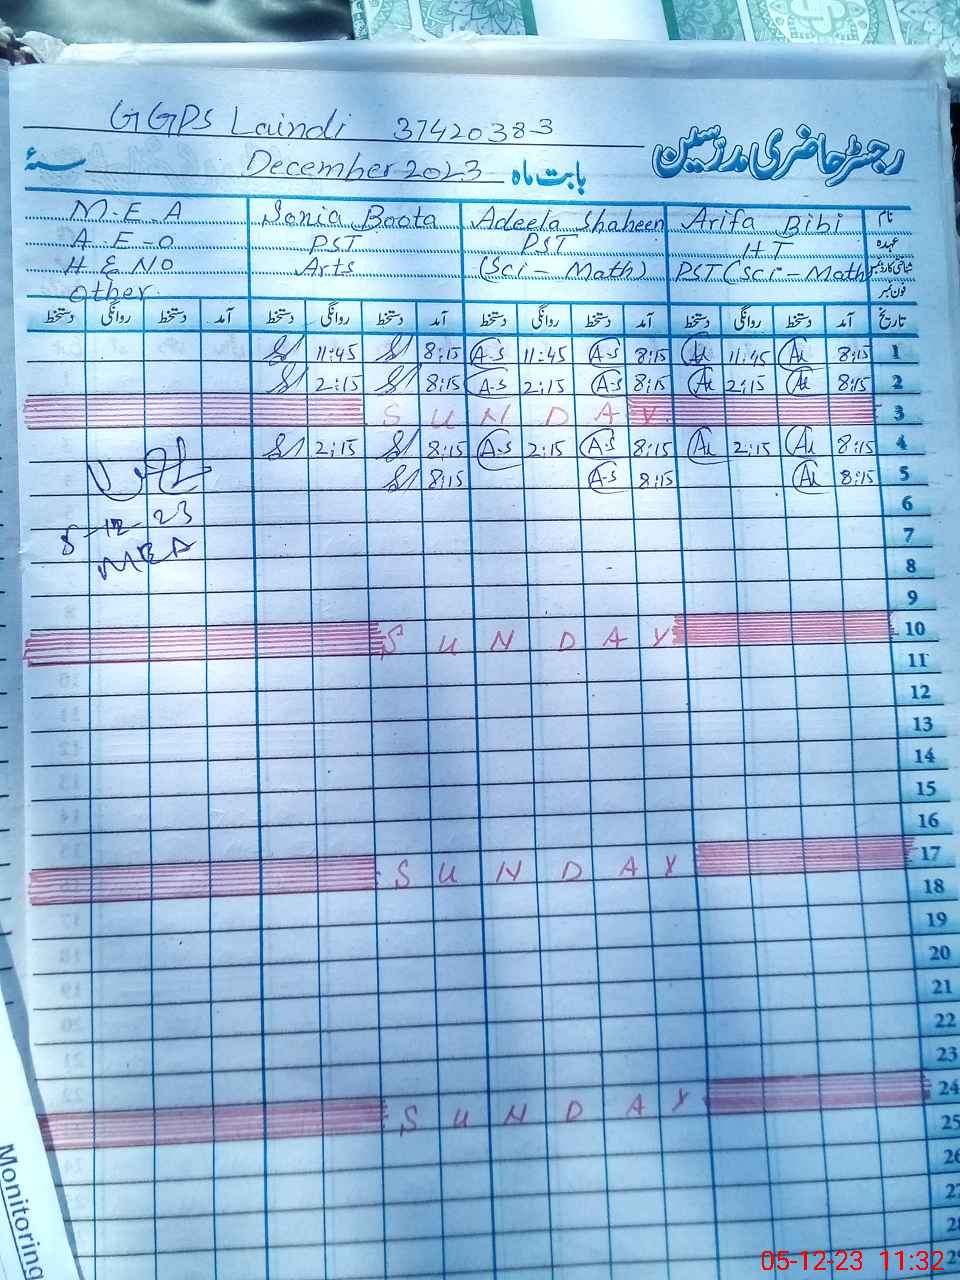 GGPS Laindi 37420383
رجسٹر حاضری مدرسین
بابت ماہ December 2023 سنہ
M.E.A Sonia Boota Adeela Shaheen Arifa Bibi نام
A.E-O PST PST HT عہدہ
H E NO Arts (Sci - Math) PST (Sci - Math) شناختی کارڈ نمبر
Other فون نمبر
دستخط روانگی دستخط آمد دستخط روانگی دستخط آمد دستخط روانگی دستخط آمد دستخط روانگی دستخط آمد تاریخ
11:45 8:15 A-S 11:45 A-S 8:15 11:45 8:15 1
2:15 8:15 A-S 2:15 A-S 8:15 2:15 8:15 2
SUNDAY 3
2:15 8:15 A-S 2:15 A-S 8:15 2:15 8:15 4
8:15 A-S 8:15 8:15 5
6
5-12-23 7
MEA 8
9
SUNDAY 10
11
12
13
14
15
16
SUNDAY 17
18
19
20
21
22
23
SUNDAY 24
25
26
27
28
29
Monitoring
05-12-23 11:32